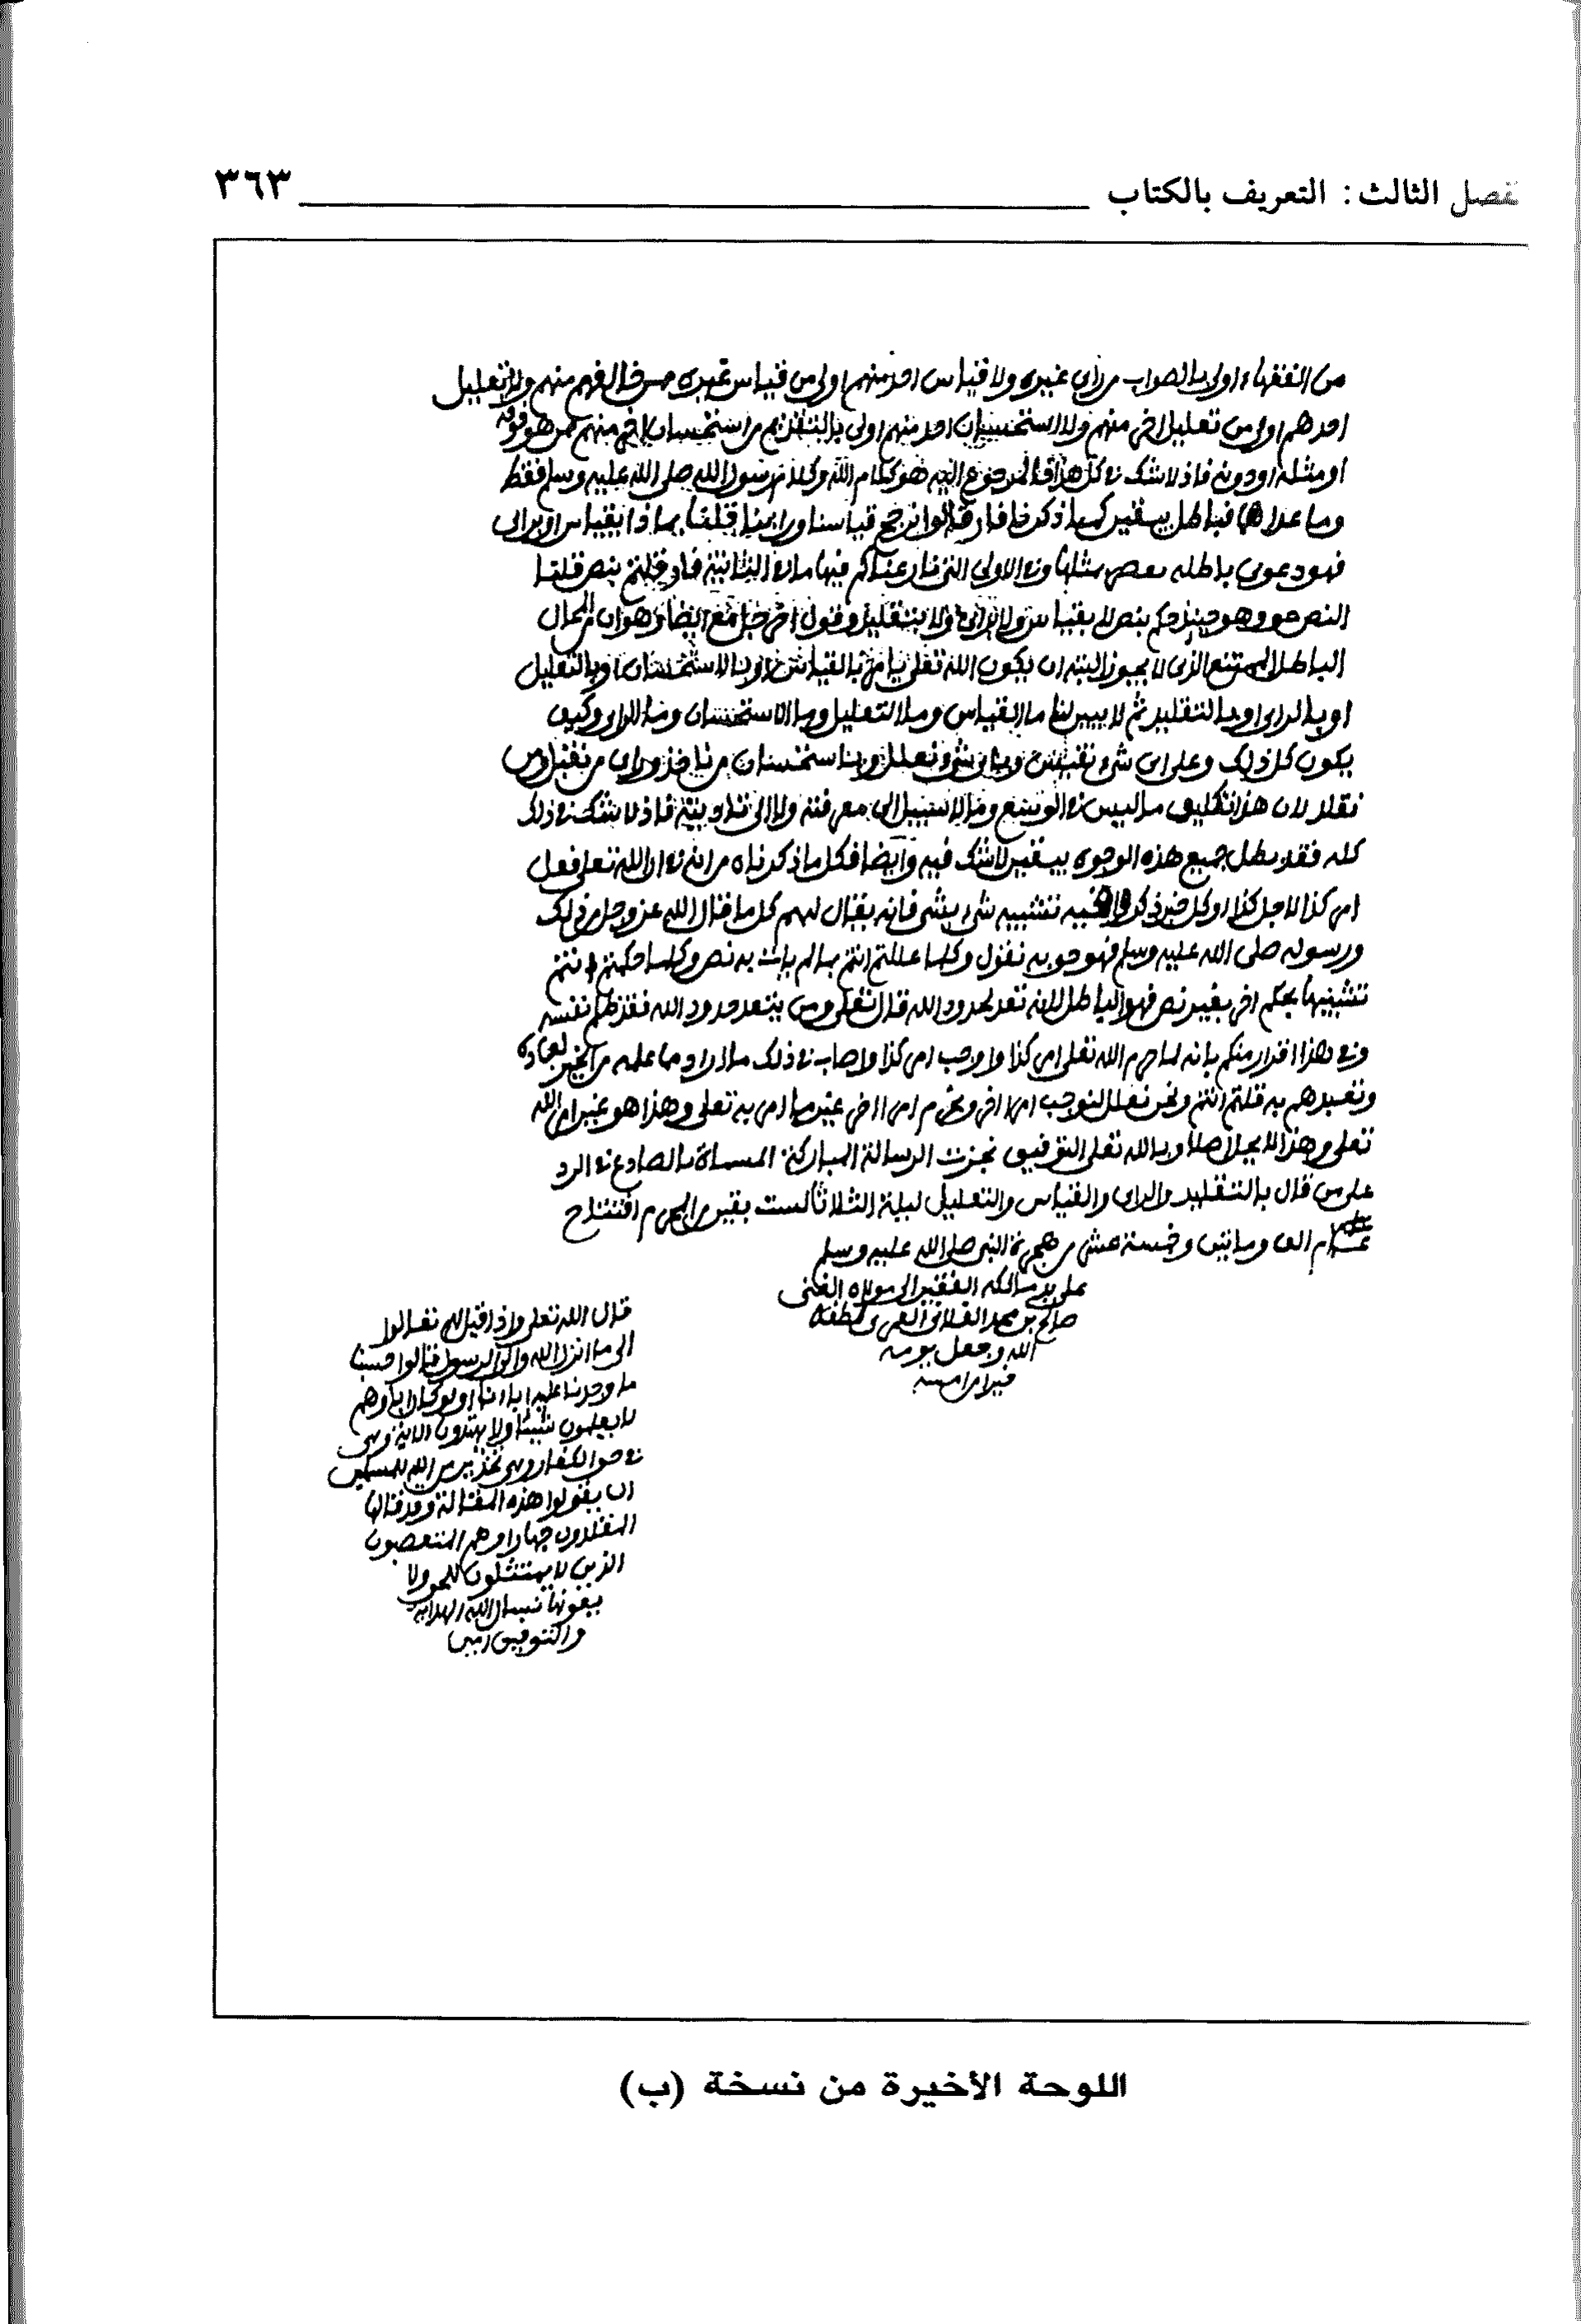 الفصل الثالث: التعريف بالكتاب ٣٦٣
من الفقهاء اولى بالصواب من راى غيره ولا قياس احد منهم اولى من قياس غيره ممن خالفهم منهم ولا تعليل
احدهم اولى من تعليل اخر منهم ولا استحسان احد منهم اولى بالتقديم من استحسان اخر منهم ممن هو فوقه
او مثله او دونه فاذ لا شك في كل هذا فالمرجوع اليه هو كلام الله وكلام رسول الله صلى الله عليه وسلم فقط
وما عداهما فباطل بيقين كما ذكرنا فان قالوا نرجح قياسنا وراينا قلنا بماذا ابقياس او براى
فهو دعوى باطله بعض مثلها وفي الاولى التى نازعناكم فيها ما في الثانية فان قلتم بنص قلنا
النص هو وهو حينئذ حكم بنص لا بقياس ولا براى ولا بتقليد وقول اخر جامع ايضا وهو ان المحال
الباطل الممتنع الذى لا يجوز البته ان يكون الله تعلى يامر بالقياس او بالاستحسان او بالتعليل
او بالراى او بالتقليد ثم لا يبين لنا ما القياس وما التعليل وما الاستحسان وما الراى وكيف
يكون كل ذلك وعلى اى شىء نقيس وباى شىء نعلل وباستحسان من ناخذ وراى من نقبل ومن
نقلد لان هذا تكليف ما ليس في الوسع وما لا سبيل الى معرفته ولا الى تاديته فاذ لا شك في ذلك
كله فقد بطل جميع هذه الوجوه بيقين لا شك فيه وايضا فكل ما ذكرناه من اية في ان الله تعلى فعل
امر كذا لاجل كذا او كل خبر ذكروا فيه تشبيه شىء بشىء فانه يقال لهم كل ما قال الله عز وجل من ذلك
ورسوله صلى الله عليه وسلم فهو حق به نقول وكلما عللتم انتم بما لم يات به نص وكلما حكمتم انتم
تشبيها بحكم اخر بغير نص فهو الباطل لانه تعد لحدود الله قال تعلى ومن يتعد حدود الله فقد ظلم نفسه
وفي هذا اقرار منكم بانه لما حرم الله تعلى امر كذا واوجب امر كذا واصاب في ذلك ما اراد وما علمه من الخير لعباده
وتعبدهم به قلتم انتم ونحن نعلل لنوجب امرا اخر ونحرم امرا اخر غير ما امر به تعلى وهذا هو غير امر الله
تعلى وهذا لا يحل اصلا وبالله تعلى التوفيق نجزت الرسالة المباركة المسماة بالصادع في الرد
على من قال بالتقليد والراى والقياس والتعليل ليلة الثلاثا لست بقين من المحرم افتتاح
عام الف ومائتين وخمسة عشر من هجرة النبى صلى الله عليه وسلم
على يد مالكه الفقير الى مولاه الغنى
صالح بن محمد الفلانى العمرى لطف
الله وجعل يومه
خيرا من امسه
قال الله تعلى واذا قيل لهم تعالوا
الى ما انزل الله والى الرسول قالوا حسبنا
ما وجدنا عليه اباءنا اولو كان اباؤهم
لا يعلمون شيئا ولا يهتدون الاية وهى
في حق الكفار وهى تحذير من الله للمسلمين
ان يقولوا هذه المقالة وقد قالها
المقلدون جهارا وهم المتعصبون
الذين لا يمتثلون للحق ولا
يبغونه نسال الله الهداية
والتوفيق امين
اللوحة الأخيرة من نسخة (ب)